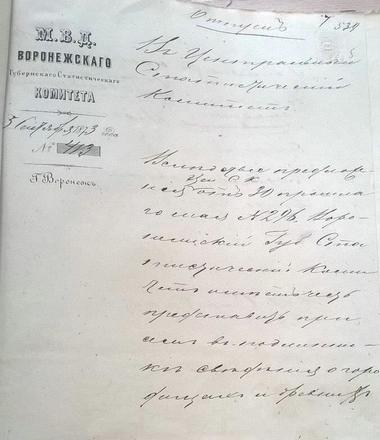 Отпускъ
М. В. Д.
ВОРОНЕЖСКАГО
Губернскаго Статистическаго
КОМИТЕТА
5 Сентября 1873 года
№ 413
Г. Воронежъ.
Въ Центральный
Статистический
Комитетъ
Вслѣдствіе предложе-
нія отъ 30 прошла-
го мая № 296, Воро-
нежскій Губ. Ста-
тистическій Коми-
тетъ имѣетъ честь
представить при
семъ въ подлинни-
кѣ свѣдѣнія о горо-
дищахъ и древнихъ